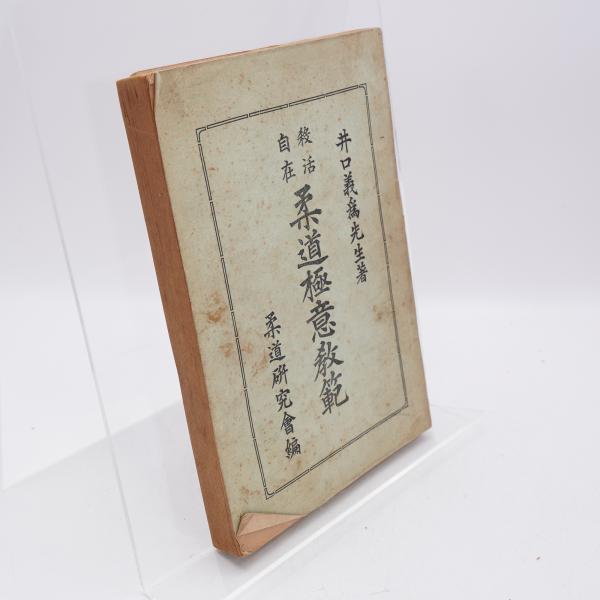 井口義為先生著
殺活
自在
柔道極意教範
柔道研究會編